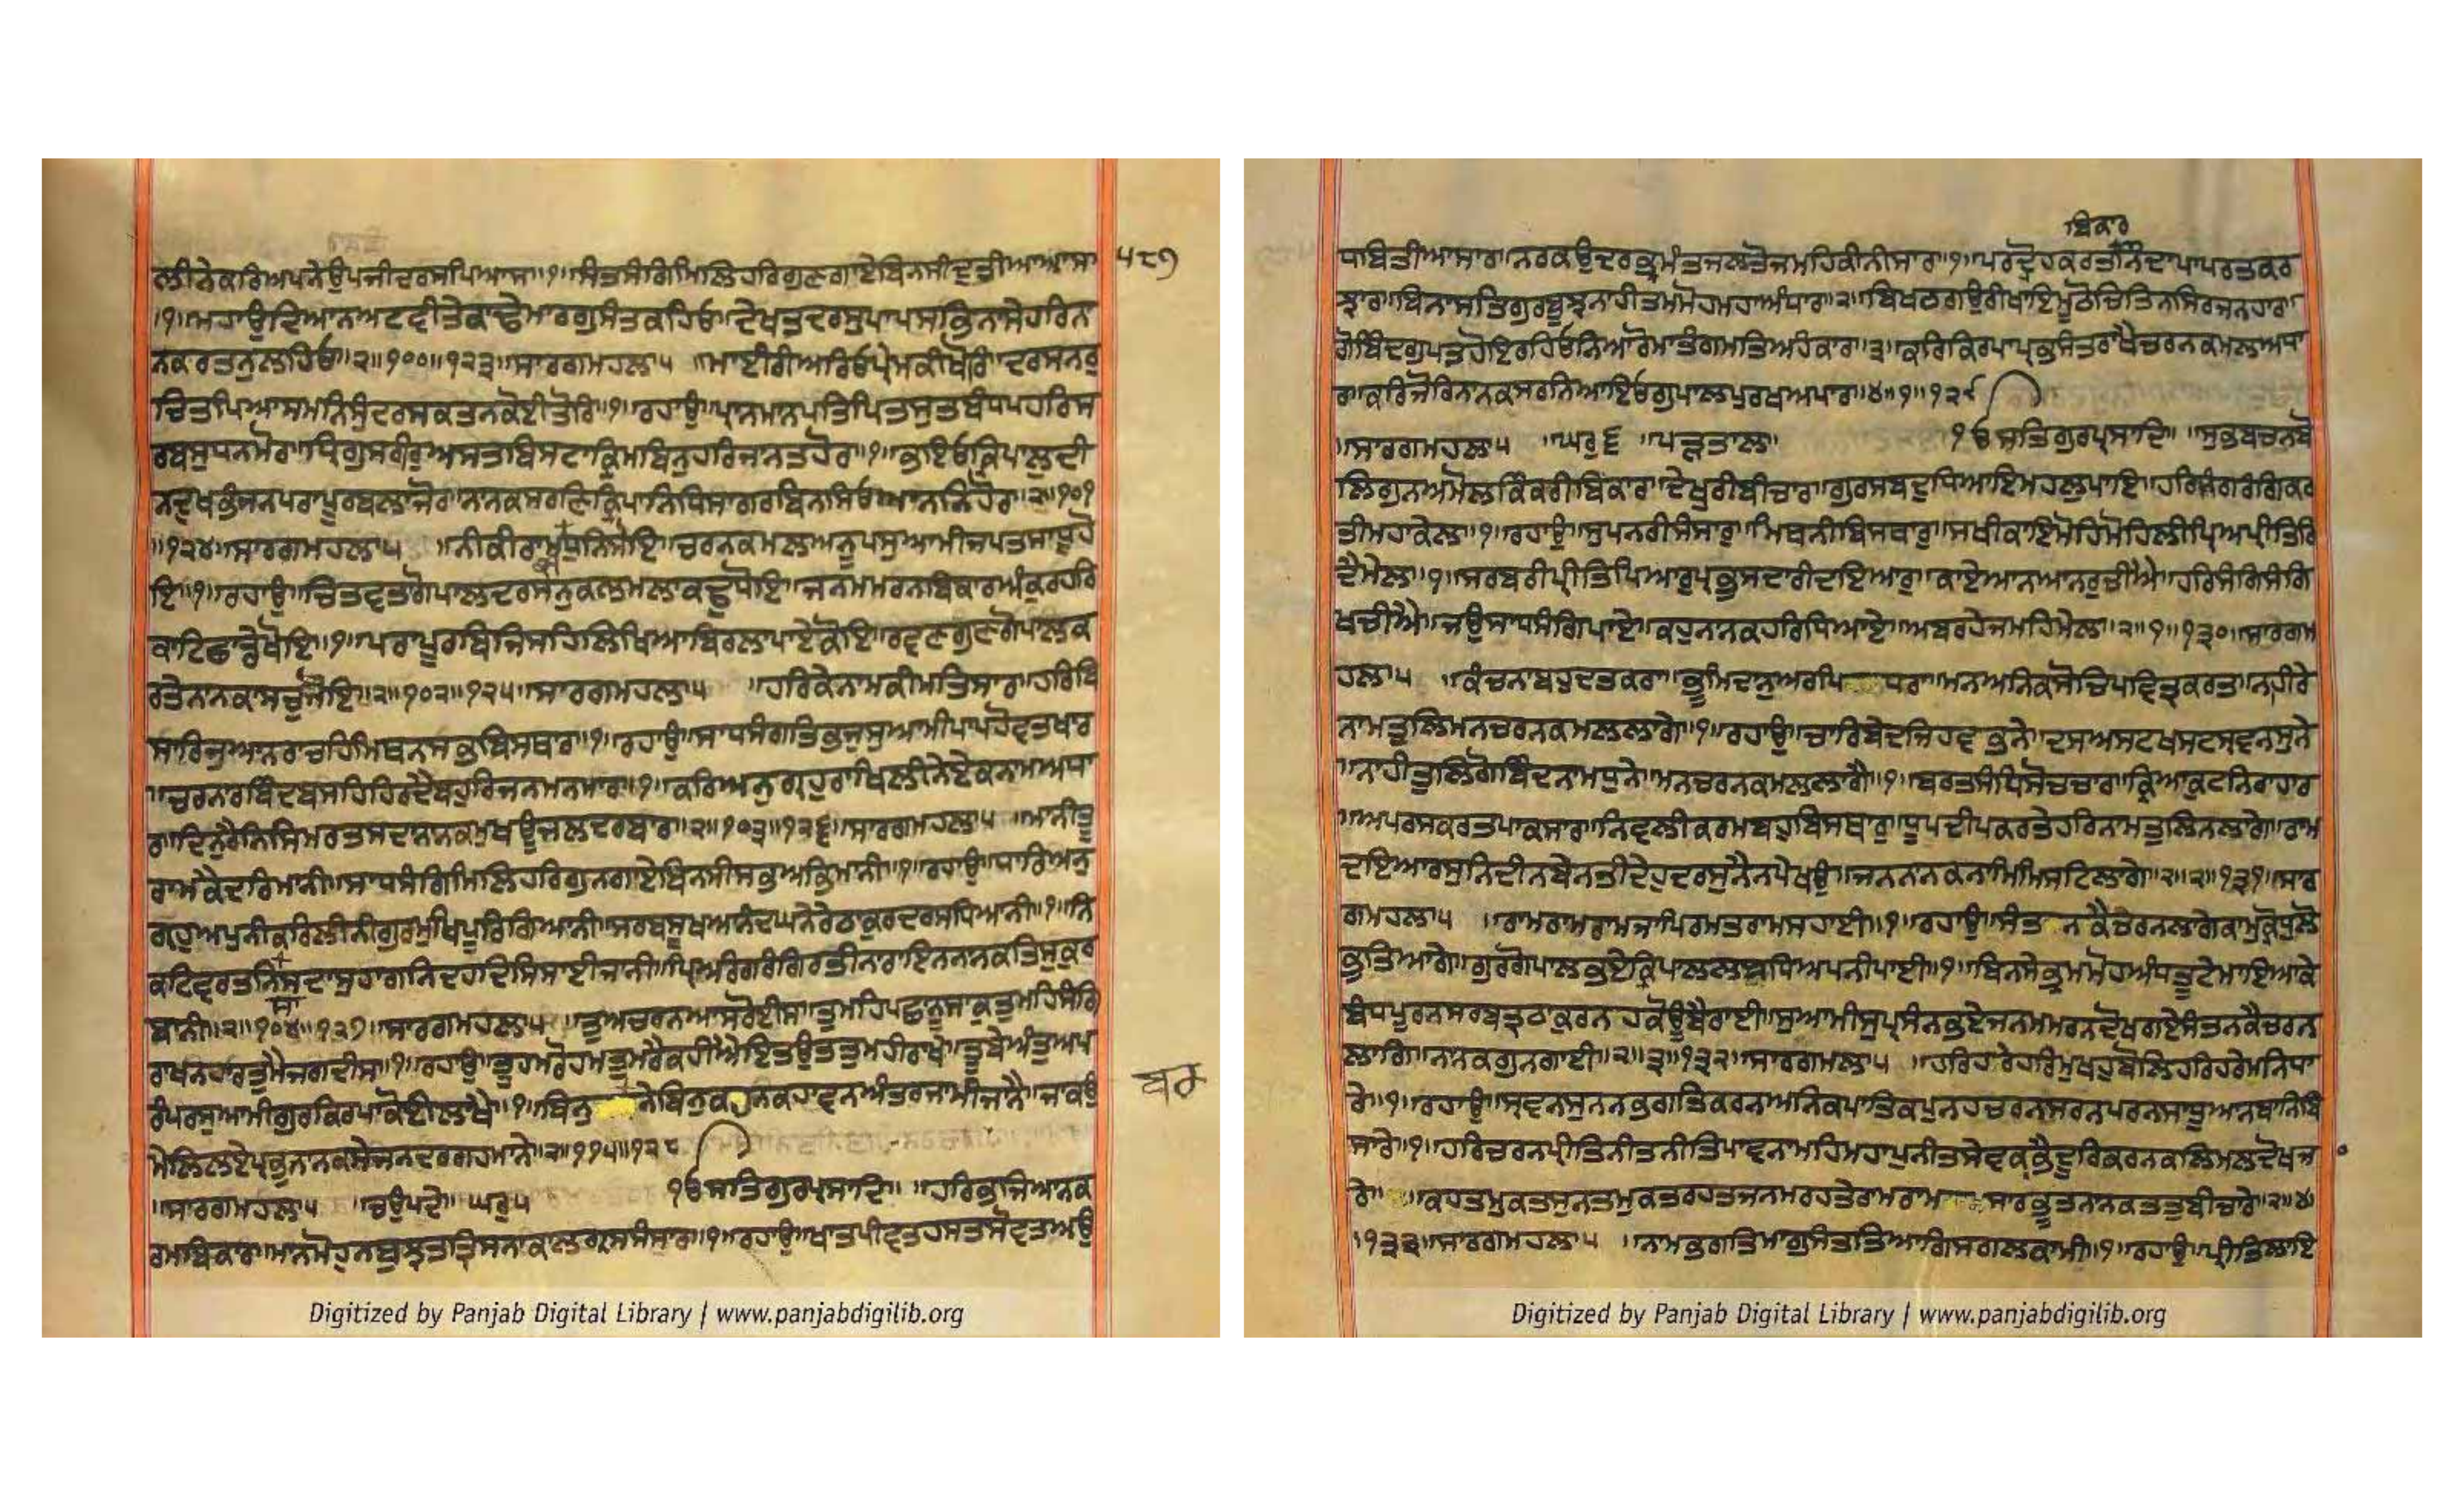 ਲੀਨੇਕਰਿਅਪਨੇਉਪਜੀਦਰਸਪਿਆਸਾ॥੧॥ਸੰਤਸੰਗਿਮਿਲਿਹਰਿਗੁਣਗਾਏਬਿਨਸੀਦੁਤੀਆਆਸਾ ੫੮੭
॥੧॥ਮਹਾਉਦਿਆਨਅਟਵੀਤੇਕਾਢੇਮਾਰਗੁਸੰਤਕਹਿਓ॥ਦੇਖਤਦਰਸੁਪਾਪਸਭਿਨਾਸੇਹਰਿਨਾ
ਨਕਰਤਨੁਲਹਿਓ॥੨॥੧੦੦॥੧੨੩॥ਸਾਰਗਮਹਲਾ੫ ॥ਮਾਈਰੀਅਰਿਓਪ੍ਰੇਮਕੀਖੋਰਿ॥ਦਰਸਨਰੁ
ਚਿਤਪਿਆਸਮਨਿਸੁੰਦਰਸਕਤਨਕੋਈਤੋਰਿ॥੧॥ਰਹਾਉ॥ਪ੍ਰਾਨਮਨਪਤਿਪਿਤਸੁਤਬੰਧਪਹਰਿਸ
ਰਬਸੁਧਨਮੋਰ॥ਧ੍ਰਿਗੁਸਰੀਰੁਅਸਤਬਿਸਟਾਕ੍ਰਿਮਬਿਨੁਹਰਿਜਾਨਤਹੋਰ॥੧॥ਭਇਓਕ੍ਰਿਪਾਲਦੀ
ਨਦੁਖਭੰਜਨਪਰਾਪੂਰਬਲਾਜੋਰ॥ਨਾਨਕਸਰਣਿਕ੍ਰਿਪਾਨਿਧਿਸਾਗਰਬਿਨਸਿਓਆਨਨਿਹੋਰ॥੨॥੧੦੧
॥੧੨੪॥ਸਾਰਗਮਹਲਾ੫ ॥ਨੀਕੀਰਾਮਧੁਨਿਸੋਇ॥ਚਰਨਕਮਲਅਨੂਪਸੁਆਮੀਜਪਤਸਾਧੂਹੋ
ਇ॥੧॥ਰਹਾਉ॥ਚਿਤਵਤਗੋਪਾਲਦਰਸਨੁਕਲਮਲਾਕਢੁਧੋਇ॥ਜਨਮਮਰਨਬਿਕਾਰਅੰਕੁਰਹਰਿ
ਕਾਟਿਛਾਡੇਖੋਇ॥੧॥ਪਰਾਪੂਰਬਿਜਿਸਹਿਲਿਖਿਆਬਿਰਲਾਪਾਏਕੋਇ॥ਰਵਣਗੁਣਗੋਪਾਲਕ
ਰਤੇਨਾਨਕਾਸਚੁਜੋਇ॥੨॥੧੦੨॥੧੨੫॥ਸਾਰਗਮਹਲਾ੫ ॥ਹਰਿਕੇਨਾਮਕੀਮਤਿਸਾਰ॥ਹਰਿਬਿ
ਸਾਰਿਜੁਆਨਰਾਚਹਿਮਿਥਨਸਭਬਿਸਥਾਰ॥੧॥ਰਹਾਉ॥ਸਾਧਸੰਗਤਿਭਜੁਸੁਆਮੀਪਾਪਹੋਵਤਖਾਰ
॥ਚਰਨਾਰਬਿੰਦਬਸਹਿਹਿਰਦੈਬਹੁਰਿਜਨਮਨਮਾਰ॥੧॥ਕਰਿਅਨੁਗ੍ਰਹੁਰਾਖਿਲੀਨੇਏਕਨਾਮਅਧਾ
ਰ॥ਦਿਨੁਰੈਨਿਸਿਮਰਤਸਦਾਨਾਨਕਮੁਖਊਜਲਦਰਬਾਰ॥੨॥੧੦੩॥੧੨੬॥ਸਾਰਗਮਹਲਾ੫ ॥ਮਾਨੀਤੂੰ
ਰਾਮਕੈਦਰਿਮਾਨੀ॥ਸਾਧਸੰਗਿਮਿਲਿਹਰਿਗੁਨਗਾਏਬਿਨਸੀਸਭਅਭਿਮਾਨੀ॥੧॥ਰਹਾਉ॥ਧਾਰਿਅਨੁ
ਗ੍ਰਹੁਅਪੁਨੀਕਰਿਲੀਨੀਗੁਰਮੁਖਿਪੂਰਗਿਆਨੀ॥ਸਰਬਸੂਖਆਨੰਦਘਨੇਰੇਠਾਕੁਰਦਰਸਧਿਆਨੀ॥੧॥ਨਿ
ਕਟਿਵਰਤਨਿਸਦਾਸੁਹਾਗਨਿਦਹਦਿਸਿਸਾਈਜਾਨੀ॥ਪ੍ਰਿਅਰੰਗਿਰੰਗਿਰਤੀਨਾਰਾਇਨਨਾਨਕਤਿਸੁਕੁਰ
ਬਾਨੀ॥੨॥੧੦੪॥੧੨੭॥ਸਾਰਗਮਹਲਾ੫ ॥ਤੁਅਚਰਨਆਸਰੋਈਸ॥ਤੁਮਹਿਪਛਾਨੂਸਾਕੁਤੁਮਹਿਸੰਗਿ
ਰਾਖਨਹਾਰਤੁਮੈਜਗਦੀਸ॥੧॥ਰਹਾਉ॥ਤੂਹਮਰੋਹਮਤੁਮਰੇਕਹੀਐਇਤਉਤਤੁਮਹੀਰਾਖੇ॥ਤੂਬੇਅੰਤੁਅਪ
ਰੰਪਰਸੁਆਮੀਗੁਰਕਿਰਪਾਕੋਈਲਾਖੈ॥੧॥ਬਿਨੁ ਨੇਬਿਨੁਕਹਨਕਹਾਵਨਅੰਤਰਜਾਮੀਜਾਨੈ॥ਜਾਕਉ ਬਰ
ਮੇਲਿਲਏਪ੍ਰਭੁਨਾਨਕਸੇਜਨਦਰਗਹਮਾਨੇ॥੨॥੧੧੫॥੧੨੮
॥ਸਾਰਗਮਹਲਾ੫ ॥ਚਉਪਦੇ॥ ਘਰੁ੫ ੴਸਤਿਗੁਰਪ੍ਰਸਾਦਿ॥ ॥ਹਰਿਭਜਿਆਨਕ
ਰਮਬਿਕਾਰ॥ਮਾਨਮੋਹੁਨਬੁਝਤਤ੍ਰਿਸਨਾਕਾਲਗ੍ਰਸਸੰਸਾਰ॥੧॥ਰਹਾਉ॥ਖਾਤਪੀਵਤਹਸਤਸੋਵਤਅਉ
ਬਿਕਾਰ
ਧਬਿਤੀਅਸਾਰ॥ਨਰਕਉਦਰਭ੍ਰਮੰਤਜਲਤੋਜਮਹਿਕੀਨੀਸਾਰ॥੧॥ਪਰਦ੍ਰੋਹਕਰਤਨਿੰਦਾਪਾਪਰਤਕਰ
ਝਾਰ॥ਬਿਨਾਸਤਿਗੁਰਬੂਝਨਾਹੀਤਮਮੋਹਮਹਾਅੰਧਾਰ॥੨॥ਬਿਖਠਗਉਰੀਖਾਇਮੂਠੋਚਿਤਿਨਸਿਰਜਨਹਾਰ॥
ਗੋਬਿੰਦਗੁਪਤਹੋਇਰਹਿਓਨਿਆਰੋਮਾਤੰਗਮਤਿਅਹੰਕਾਰ॥੩॥ਕਰਿਕ੍ਰਿਪਾਪ੍ਰਭਸੰਤਰਾਖੇਚਰਨਕਮਲਅਧਾ
ਰ॥ਕਰਿਜੋਰਿਨਾਨਕਸਰਨਿਆਇਓਗੁਪਾਲਪੁਰਖਅਪਾਰ॥੪॥੧॥੧੨੯
॥ਸਾਰਗਮਹਲਾ੫ ॥ਘਰੁ੬ ॥ਪੜਤਾਲ॥ ੴਸਤਿਗੁਰਪ੍ਰਸਾਦਿ॥ ॥ਸੁਭਬਚਨਬੋ
ਲਿਗੁਨਅਮੋਲ॥ਕਿੰਕਰੀਬਿਕਾਰ॥ਦੇਖੁਰੀਬੀਚਾਰ॥ਗੁਰਸਬਦੁਧਿਆਇਮਹਲੁਪਾਇ॥ਹਰਿਸੰਗਿਰੰਗਕਰ
ਤੀਮਹਾਕੇਲ॥੧॥ਰਹਾਉ॥ਸੁਪਨਰੀਸੰਸਾਰੁ॥ਮਿਥਨੀਬਿਸਥਾਰੁ॥ਸਖੀਕਾਇਮੋਹਿਮੋਹਿਲੀਪ੍ਰਿਅਪ੍ਰੀਤਿਰਿ
ਦੈਮੇਲ॥੧॥ਸਰਬਰੀਪ੍ਰੀਤਿਪਿਆਰੁ॥ਪ੍ਰਭੁਸਦਾਰੀਦਇਆਰੁ॥ਕਾਏਆਨਆਨਰੁਚੀਐ॥ਹਰਿਸੰਗਿਸੰਗਿ
ਖਚੀਐ॥ਜਉਸਾਧਸੰਗਿਪਾਏ॥ਕਹੁਨਾਨਕਹਰਿਧਿਆਏ॥ਅਬਰਹੇਜਮਹਿਮੇਲ॥੨॥੧॥੧੩੦॥ਸਾਰਗਮ
ਹਲਾ੫ ॥ਕੰਚਨਾਬਹੁਦਤਕਰਾ॥ਭੂਮਿਦਾਨੁਅਰਪਿ ਧਰਾ॥ਮਨਅਨਿਕਸੋਚਪਵਿਤ੍ਰਕਰਤ॥ਨਾਹੀਰੇ
ਨਾਮਤੁਲਿਮਨਚਰਨਕਮਲਲਾਗੇ॥੧॥ਰਹਾਉ॥ਚਾਰਿਬੇਦਜਿਹਵਭਨੇ॥ਦਸਅਸਟਖਸਟਸ੍ਰਵਨਸੁਨੇ
॥ਨਾਹੀਤੁਲਿਗੋਬਿੰਦਨਾਮਧੁਨੇ॥ਮਨਚਰਨਕਮਲਲਾਗੇ॥੧॥ਬਰਤਸੰਧਿਸੋਚਚਾਰ॥ਕ੍ਰਿਆਕੁਟਨਿਰਾਹਾਰ
॥ਅਪਰਸਕਰਤਪਾਕਸਾਰ॥ਨਿਵਲੀਕਰਮਬਹੁਬਿਸਥਾਰੁ॥ਧੂਪਦੀਪਕਰਤੇਹਰਿਨਾਮਤੁਲਿਨਲਾਗੇ॥ਰਾਮ
ਦਇਆਰਸੁਨਿਦੀਨਬੇਨਤੀਦੇਹੁਦਰਸੁਨੈਨਪੇਖਉ॥ਜਨਨਾਨਕਨਾਮਮਿਸਟਿਲਾਗੇ॥੨॥੨॥੧੩੧॥ਸਾਰ
ਗਮਹਲਾ੫ ॥ਰਾਮਰਾਮਰਾਮਜਾਪਿਰਮਤਰਾਮਸਹਾਈ॥੧॥ਰਹਾਉ॥ਸੰਤ ਨਕੈਚਰਨਲਾਗੇਕਾਮਕ੍ਰੋਧਲੋ
ਭਤਿਆਗੇ॥ਗੁਰਗੋਪਾਲਭਏਕ੍ਰਿਪਾਲਲਬਧਿਅਪਨੀਪਾਈ॥੧॥ਬਿਨਸੇਭ੍ਰਮਮੋਹਅੰਧਤੂਟੇਮਾਇਆਕੇ
ਬੰਧਪੂਰਨਸਰਬਤ੍ਰਠਾਕੁਰਨਹਕੋਊਬੈਰਾਈ॥ਸੁਆਮੀਸੁਪ੍ਰਸੰਨਭਏਜਨਮਮਰਨਦੋਖਗਏਸੰਤਨਕੈਚਰਨ
ਲਾਗਿ॥ਨਾਨਕਗੁਨਗਾਈ॥੨॥੩॥੧੩੨॥ਸਾਰਗਮਲਾ੫ ॥ਹਰਿਹਰੇਹਰਿਮੁਖਹੁਬੋਲਿਹਰਿਹਰੇਮਨਿਧਾ
ਰੇ॥੧॥ਰਹਾਉ॥ਸ੍ਰਵਨਸੁਨਨਭਗਤਿਕਰਨਅਨਿਕਪਾਤਿਕਪੁਨਹਚਰਨਸਰਨਪਰਨਸਾਧੂਆਨਬਾਨਿਬਿ
ਸਾਰੇ॥੧॥ਹਰਿਚਰਨਪ੍ਰੀਤਿਨੀਤਨੀਤਿਪਾਵਨਾਮਹਿਮਹਾਪੁਨੀਤਸੇਵਕਭੈਦੂਰਿਕਰਨਕਲਿਮਲਦੋਖਜਾ
ਰੇ॥ ਕਹਤਮੁਕਤਸੁਨਤਮੁਕਤਰਹਤਜਨਮਰਹਤੇਰਾਮਰਾਮ ਸਾਰਭੂਤਨਾਨਕਤਤੁਬੀਚਾਰੇ॥੨॥੪
॥੧੩੩॥ਸਾਰਗਮਹਲਾ੫ ॥ਨਾਮਭਗਤਿਮਾਗੁਸੰਤਤਿਆਗਿਸਗਲਕਾਮੀ॥੧॥ਰਹਾਉ॥ਪ੍ਰੀਤਿਲਾਇ
Digitized by Panjab Digital Library | www.panjabdigilib.org
Digitized by Panjab Digital Library | www.panjabdigilib.org